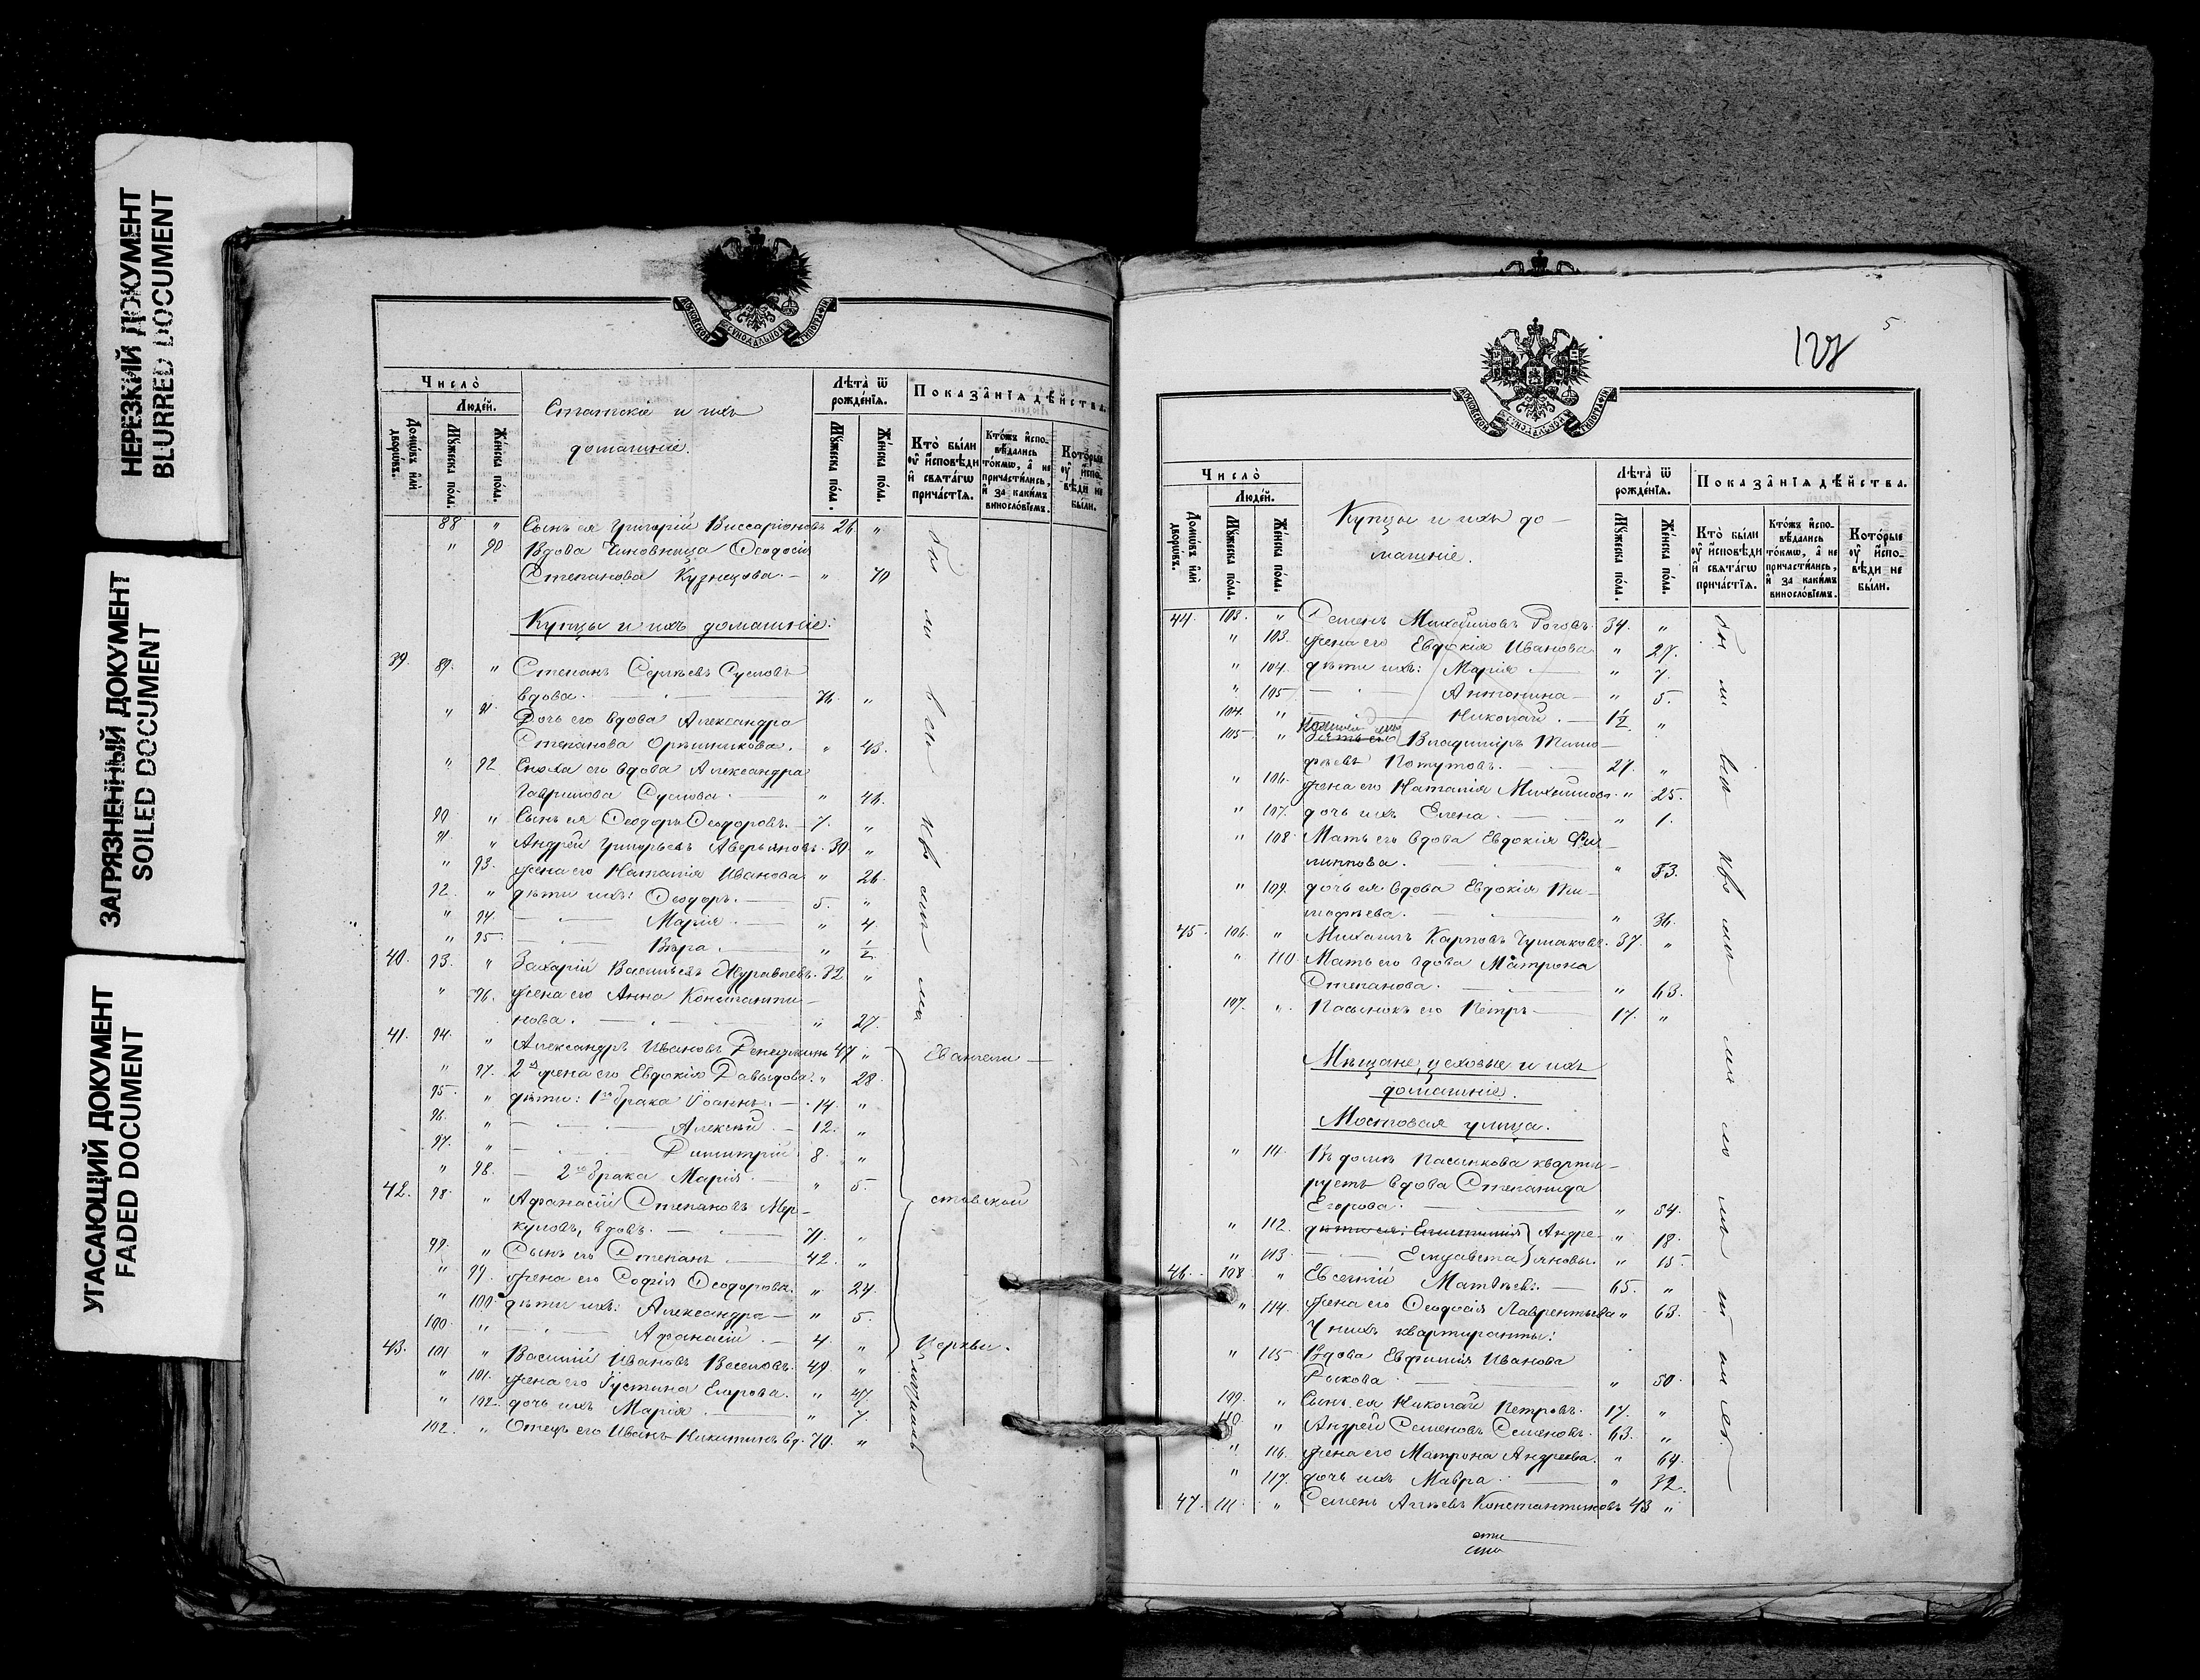 НЕРЕЗКИЙ ДОКУМЕНТ
BLURRED DOCUMENT
ЗАГРЯЗНЕННЫЙ ДОКУМЕНТ
SOILED DOCUMENT
УГАСАЮЩИЙ ДОКУМЕНТ
FADED DOCUMENT
МОСКОВСКОЙ СѴНОДАЛЬНОЙ ТИПОГРАФІИ
Число̀
Люде́й.
Домѡ́въ и҆лѝ дворѡ́въ.
Мꙋ́жеска по́ла.
Же́нска по́ла.
Статскіе и ихъ
домашніе.
Лѣта̀ ѿ рожде́нїѧ.
Мꙋ́жеска по́ла.
Же́нска по́ла.
Показа̂нїѧ дѣ́йства.
Кто̀ бы́ли ᲂу҆ и҆сповѣди и҆ свѧта́гѡ прича́стїѧ.
Кто́жъ и҆спо-вѣдались то́кмѡ, а҆ не причасти́лись, и҆ за каки́мъ винословїемъ.
Кото́рые ᲂу҆ и҆спо-вѣди не бы́ли.
88 " Сынъ ея Григорій Виссаріоновъ 26 "
" 90 Вдова Чиновница Ѳеодосія
Степанова Кузнецова. — " 70
Купцы и ихъ домашніе:
39. 89. " Степанъ Сергѣевъ Сусловъ
вдовъ. — 76. "
" 91. Дочь его вдова Александра
Степанова Орѣшникова. " 43.
" 92 Сноха его вдова Александра
Гаврилова Суслова. — " 46.
90. " Сынъ ея Ѳеодоръ Ѳеодоровъ. — 7. "
91. " Андрей Григорьевъ Аверьяновъ. 30. "
" 93. Жена его Наталія Иванова " 26.
92. " дѣти ихъ: Ѳеодоръ. — 5. "
" 94. — Марія. — " 4.
" 95. — Вѣра. — " ½
40. 93. " Захарій Васильевъ Журавлевъ. 32. "
" 96. Жена его Анна Константи-
нова. — " 27.
41. 94. " Александръ Ивановъ Денежкинъ 47 "
" 97. 2я жена его Евдокія Давыдова. " 28.
95. " дѣти: 1го брака Іоаннъ. — 14. "
96. " — Алексѣй. — 12. "
97. " — Димитрій 8. "
" 98. — 2го брака Марія. — " 5.
42. 98. " Афанасій Степановъ Мер-
куловъ, вдовъ. — 71. "
99. " Сынъ его Степанъ — 42. "
" 99. Жена его Софія Ѳеодорова. " 24.
" 100. дѣти ихъ: Александра — " 5.
100. " — Афанасій. — 4. "
43. 101. " Василій Ивановъ Веселовъ. 49. "
" 101. Жена его Іустина Егорова. " 47.
" 102. дочь ихъ Марія — " 7.
102. " Отецъ его Иванъ Никитинъ вд. 70. "
бы ли
Евангели-
стовской
Церкви.
128
5
МОСКОВСКОЙ СѴНОДАЛЬНОЙ ТИПОГРАФІИ
Число̀
Люде́й.
Домѡ́въ и҆лѝ дворѡ́въ.
Мꙋ́жеска по́ла.
Же́нска по́ла.
Купцы и ихъ до-
машніе.
Лѣта̀ ѿ рожде́нїѧ.
Мꙋ́жеска по́ла.
Же́нска по́ла.
Показа̂нїѧ дѣ́йства.
Кто̀ бы́ли ᲂу҆ и҆сповѣди и҆ свѧта́гѡ прича́стїѧ.
Кто́жъ и҆спо-вѣдались то́кмѡ, а҆ не причасти́лись, и҆ за каки́мъ винословїемъ.
Кото́рые ᲂу҆ и҆спо-вѣди не бы́ли.
44. 103. " Семенъ Михайловъ Роговъ. 34. "
" 103. Жена его Евдокія Иванова " 27.
" 104. дѣти ихъ: Марія — " 7.
" 105 — Антонина — " 5.
104. " — Николай. — 1½ "
105. " Зять его Владиміръ Тимо-
фѣевъ Потутовъ. — 27. "
" 106. Жена его Наталія Михайлова. " 25.
" 107. дочь ихъ Елена. — " 1.
" 108. Мать его вдова Евдокія Фи-
липпова. — " 53.
" 109. дочь ея вдова Евдокія Ти-
мофѣева. — " 36.
45. 106. " Михаилъ Карповъ Чумаковъ. 37. "
" 110. Мать его вдова Матрона
Степанова. — " 63.
107. " Пасынокъ его Петръ — 17. "
Мѣщане, цеховые и ихъ
домашніе.
Мостовая улица.
" 111. Въ домѣ Пасынкова кварти-
руетъ вдова Степанида
Егорова. — " 54.
" 112. дѣти ея: Епистимія } Андре- " 18.
" 113. — Елизавета } яновы. " 15.
46. 108 " Евсегній Матвѣевъ. — 65. "
" 114. Жена его Ѳеодосія Лаврентьева " 63.
У нихъ квартиранты:
" 115. Вдова Евфимія Иванова
Рыкова — " 50.
109. " Сынъ ея Николай Петровъ. 17. "
110. " Андрей Семеновъ Семеновъ. 63. "
" 116. Жена его Матрона Андреева. " 64.
" 117. дочь ихъ Мавра. — " 32.
47. 111. " Семенъ Алѣевъ Константиновъ 43 "
бы ли